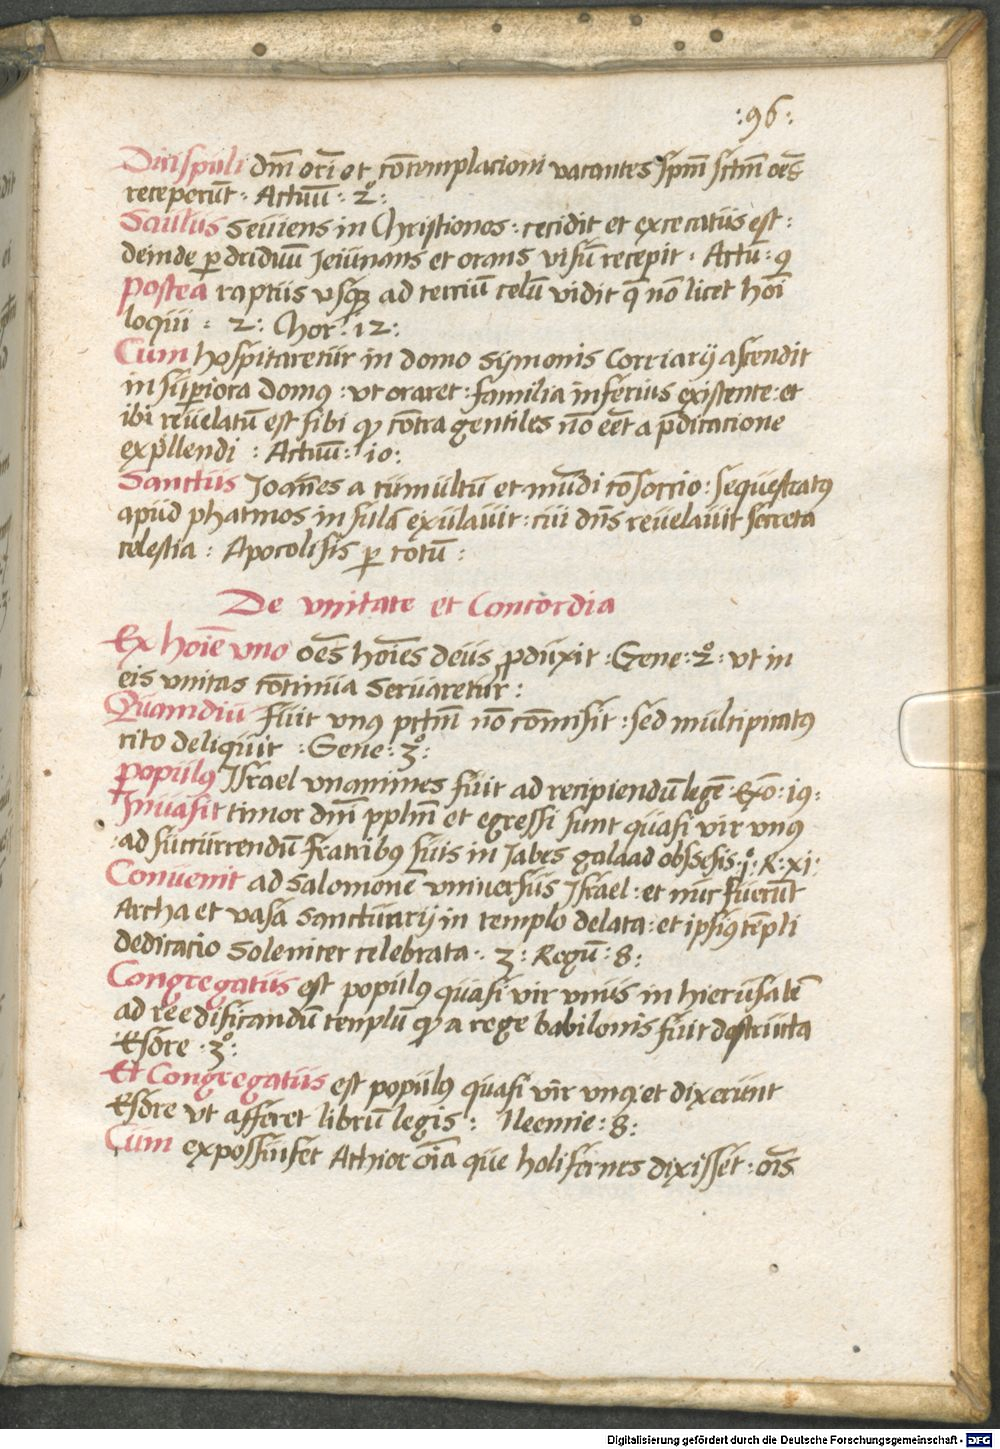 :96:
Discipuli dm̄ orōi et cōtemplacioni vacantes spm̄ sctm̄ oēs
receperūt · Actuū · 2º:
Saulus seuiens in Christionos : cecidit et excecatus est :
deinde p driduū Ieiunans et orans visū recepit · Actu : 9
Postea raptus vsqꝫ ad terciū celū vidit q̄ nō licet hoī
loqui : 2: Chor: 12:
Cum hospitaretur in domo Symonis Corriarij ascendit
in supiora domꝰ : vt oraret : familia inferius existente : et
ibi reuelatū est sibi qꝫ cōtra gentiles nō eēt a p̄dicacione
expellendi : Actuū : 10:
Sanctus Joannes a tumultū et mūdi cōsorcio : sequestratꝰ
apud phatmos insulā exulauit : cui dn̄s reuelauit secreta
celestia : Apocolisis p totū :
De vnitate et Concordia
Ex hoīe vno oēs hoīes deus pduxit : Gene: 2º: vt in
eis vnitas cōtinua seruaretur :
Quamdiu fuit vnꝰ pctm̄ nō cōmisit : sed multiplicatꝰ
cito deliquit : Gene: 3º:
Populꝰ Israel vnanimes fuit ad recipiendū legē · Exo: 19:
Inuasit timor dnī pplm̄ et egressi sunt quasi vir vnꝰ
ad succurrendū fratribꝰ suis in Jabes galaad obssesis · 1º: R: xi:
Conuenit ad Salomonē vniuersus Israel : et nūc fuerūt
Archa et vasa sanctuarij in templo delata : et ipsiꝰ tēpli
dedicacio soleniter celebrata · 3: Regū : 8:
Congregatus est populꝰ quasi vir vnus in hierusalē
ad reedificandū templū qꝫ a rege babilonis fuit destructa
Esdre · 3º:
Et Congregatus est populꝰ quasi vir vnꝰ : et dixerunt
Esdre vt afferet librū legis : Neemie : 8:
Cum expossuisset Athior oīa que holifernes dixisset : oīs
Digitalisierung gefördert durch die Deutsche Forschungsgemeinschaft - DFG